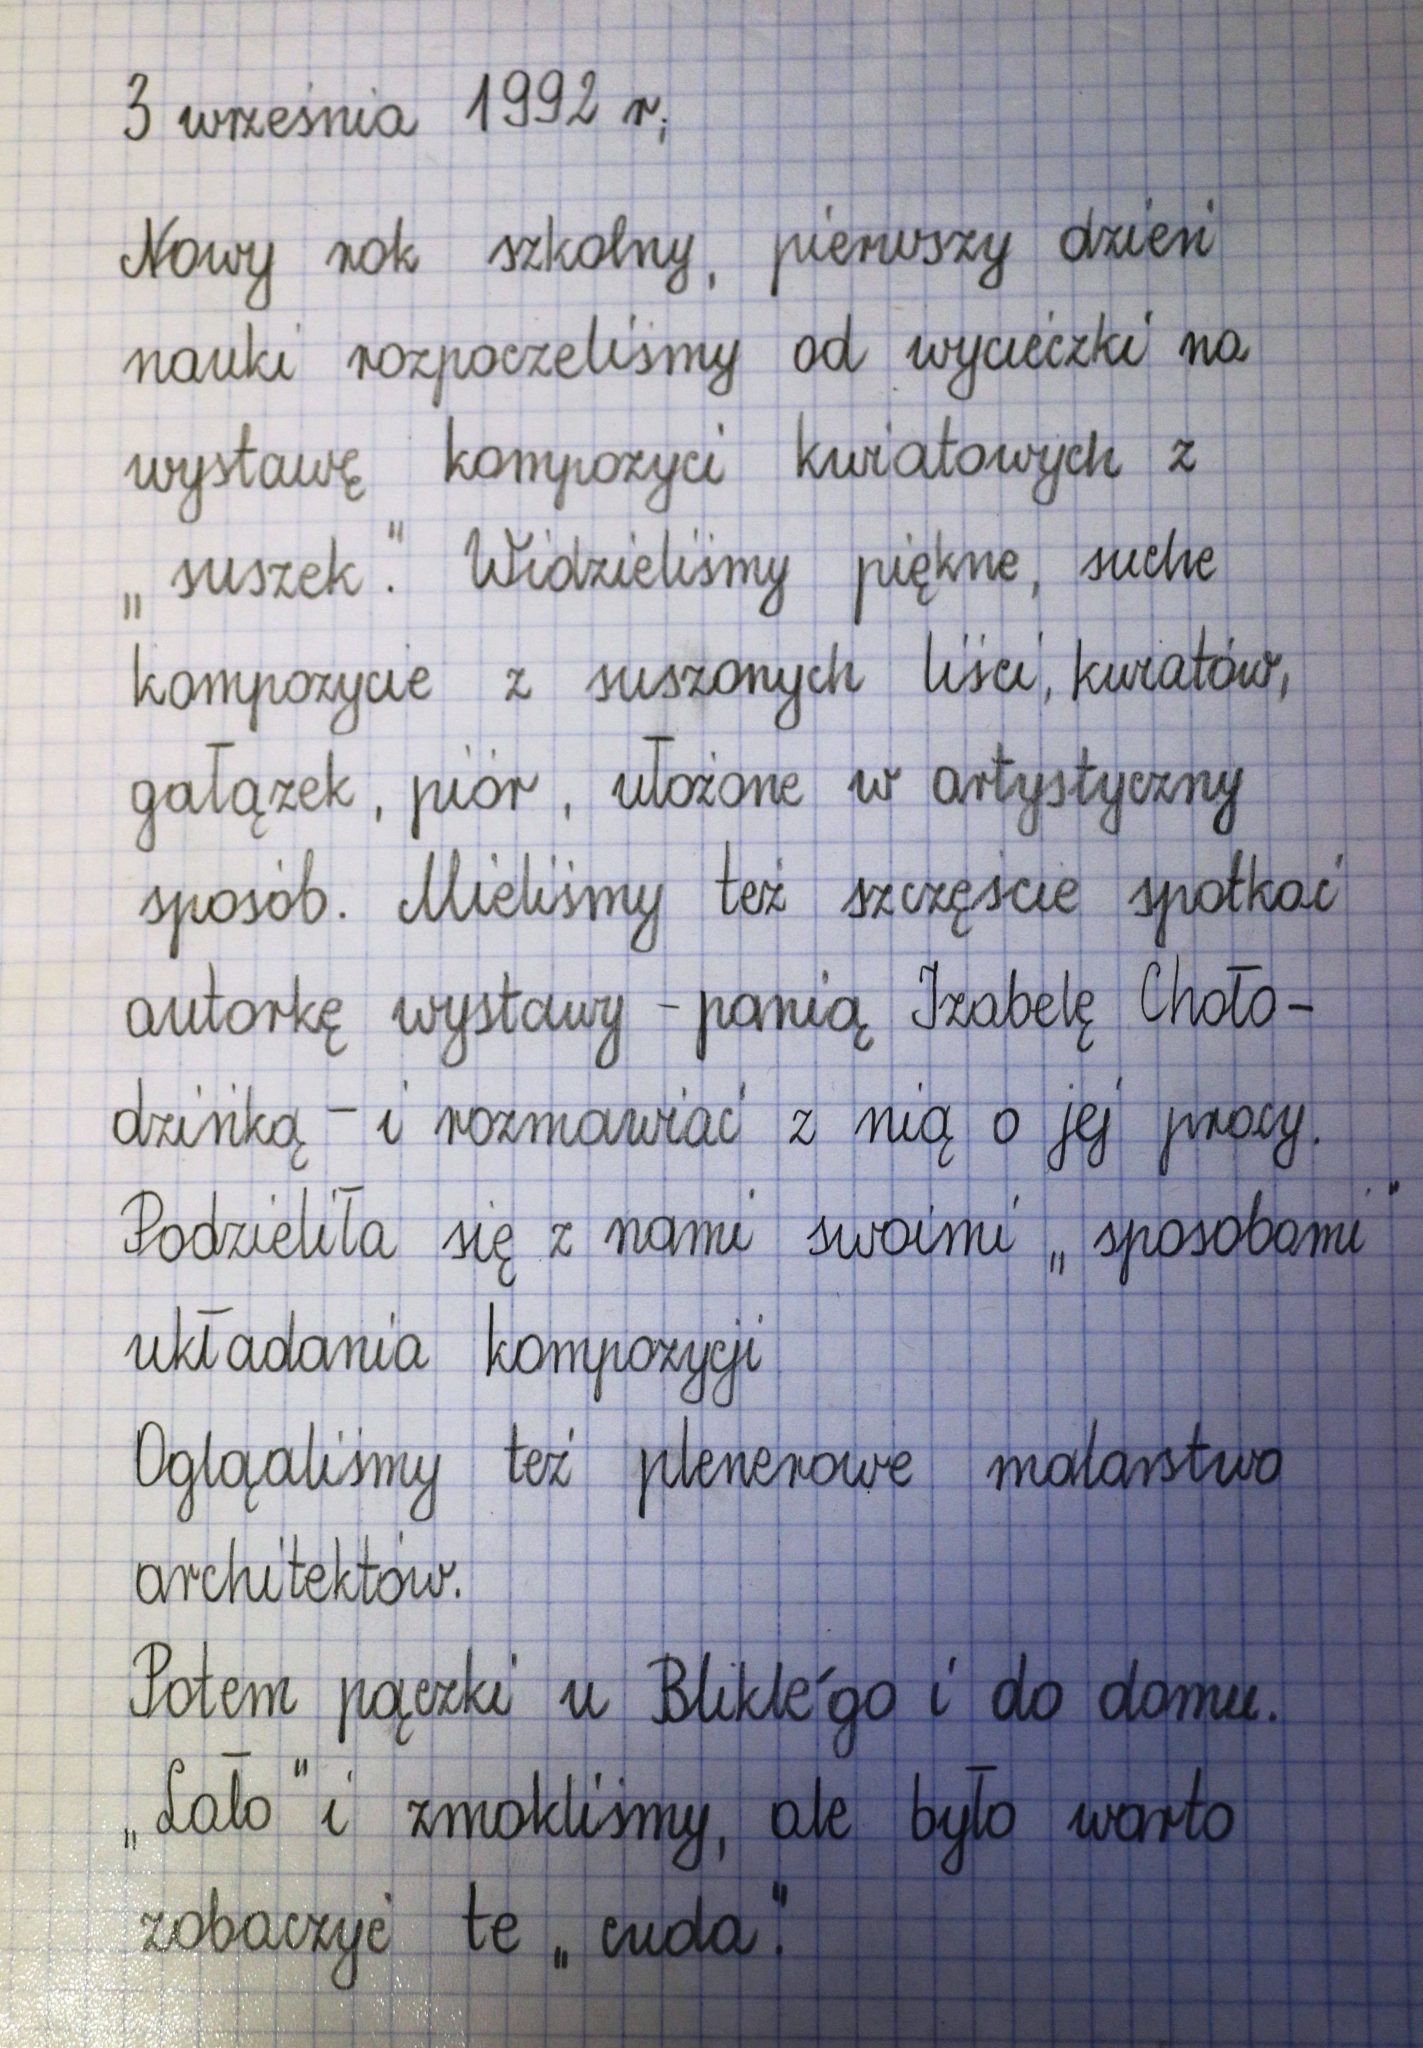 3 września 1992 r.
Nowy rok szkolny, pierwszy dzień
nauki rozpoczeliśmy od wycieczki na
wystawę kompozyci kwiatowych z
„suszek". Widzieliśmy piękne, suche
kompozycie z suszonych liści, kwiatów,
gałązek, piór, ułożone w artystyczny
sposób. Mieliśmy też szczęście spotkać
autorkę wystawy - panią Izabelę Choło-
dzińką - i rozmawiać z nią o jej pracy.
Podzieliła się z nami swoimi „sposobami"
układania kompozycji
Oglądaliśmy też plenerowe malarstwo
architektów.
Potem pączki u Blikle'go i do domu.
„Lało" i zmokliśmy, ale było warto
zobaczyć te „cuda".